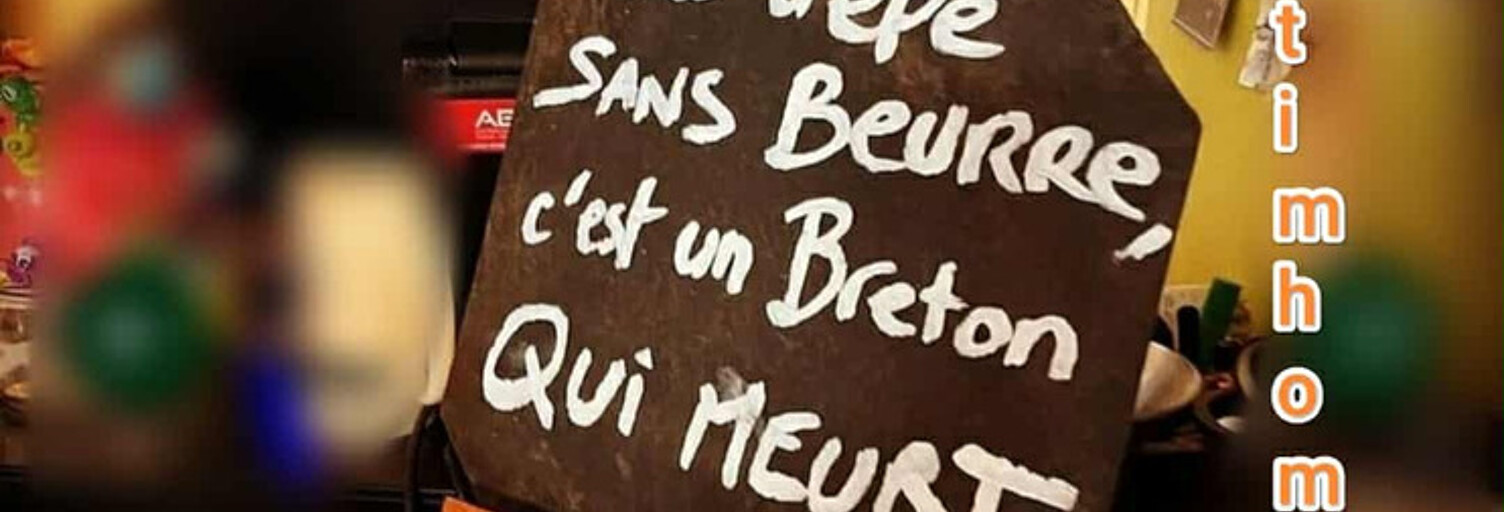 SANS BEURRE,
c'est un Breton
QUI MEURT
AE
timhom